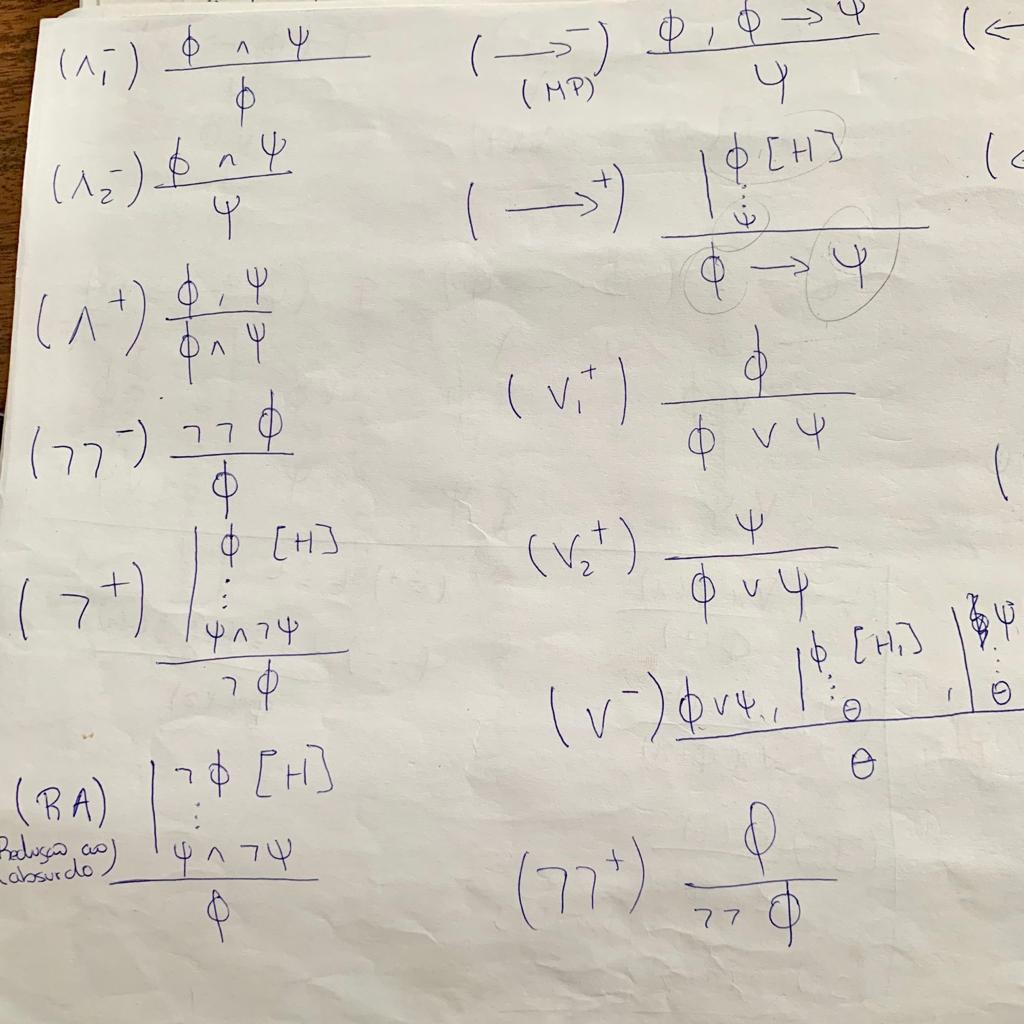 (∧₁⁻) ϕ ∧ ψ
ϕ
(∧₂⁻) ϕ ∧ ψ
ψ
(∧⁺) ϕ, ψ
ϕ ∧ ψ
(¬¬⁻) ¬¬ϕ
ϕ
(¬⁺) | ϕ [H]
⋮
ψ ∧ ¬ψ
¬ϕ
(RA) | ¬ϕ [H]
Redução ao
absurdo)
⋮
ψ ∧ ¬ψ
ϕ
(→⁻) ϕ, ϕ → ψ
(MP) ψ
(→⁺) | ϕ [H]
⋮
ψ
ϕ → ψ
(∨₁⁺) ϕ
ϕ ∨ ψ
(∨₂⁺) ψ
ϕ ∨ ψ
(∨⁻) ϕ ∨ ψ, | ϕ [H₁] , | ψ
⋮ ⋮
θ θ
θ
(¬¬⁺) ϕ
¬¬ϕ
(←
(
(